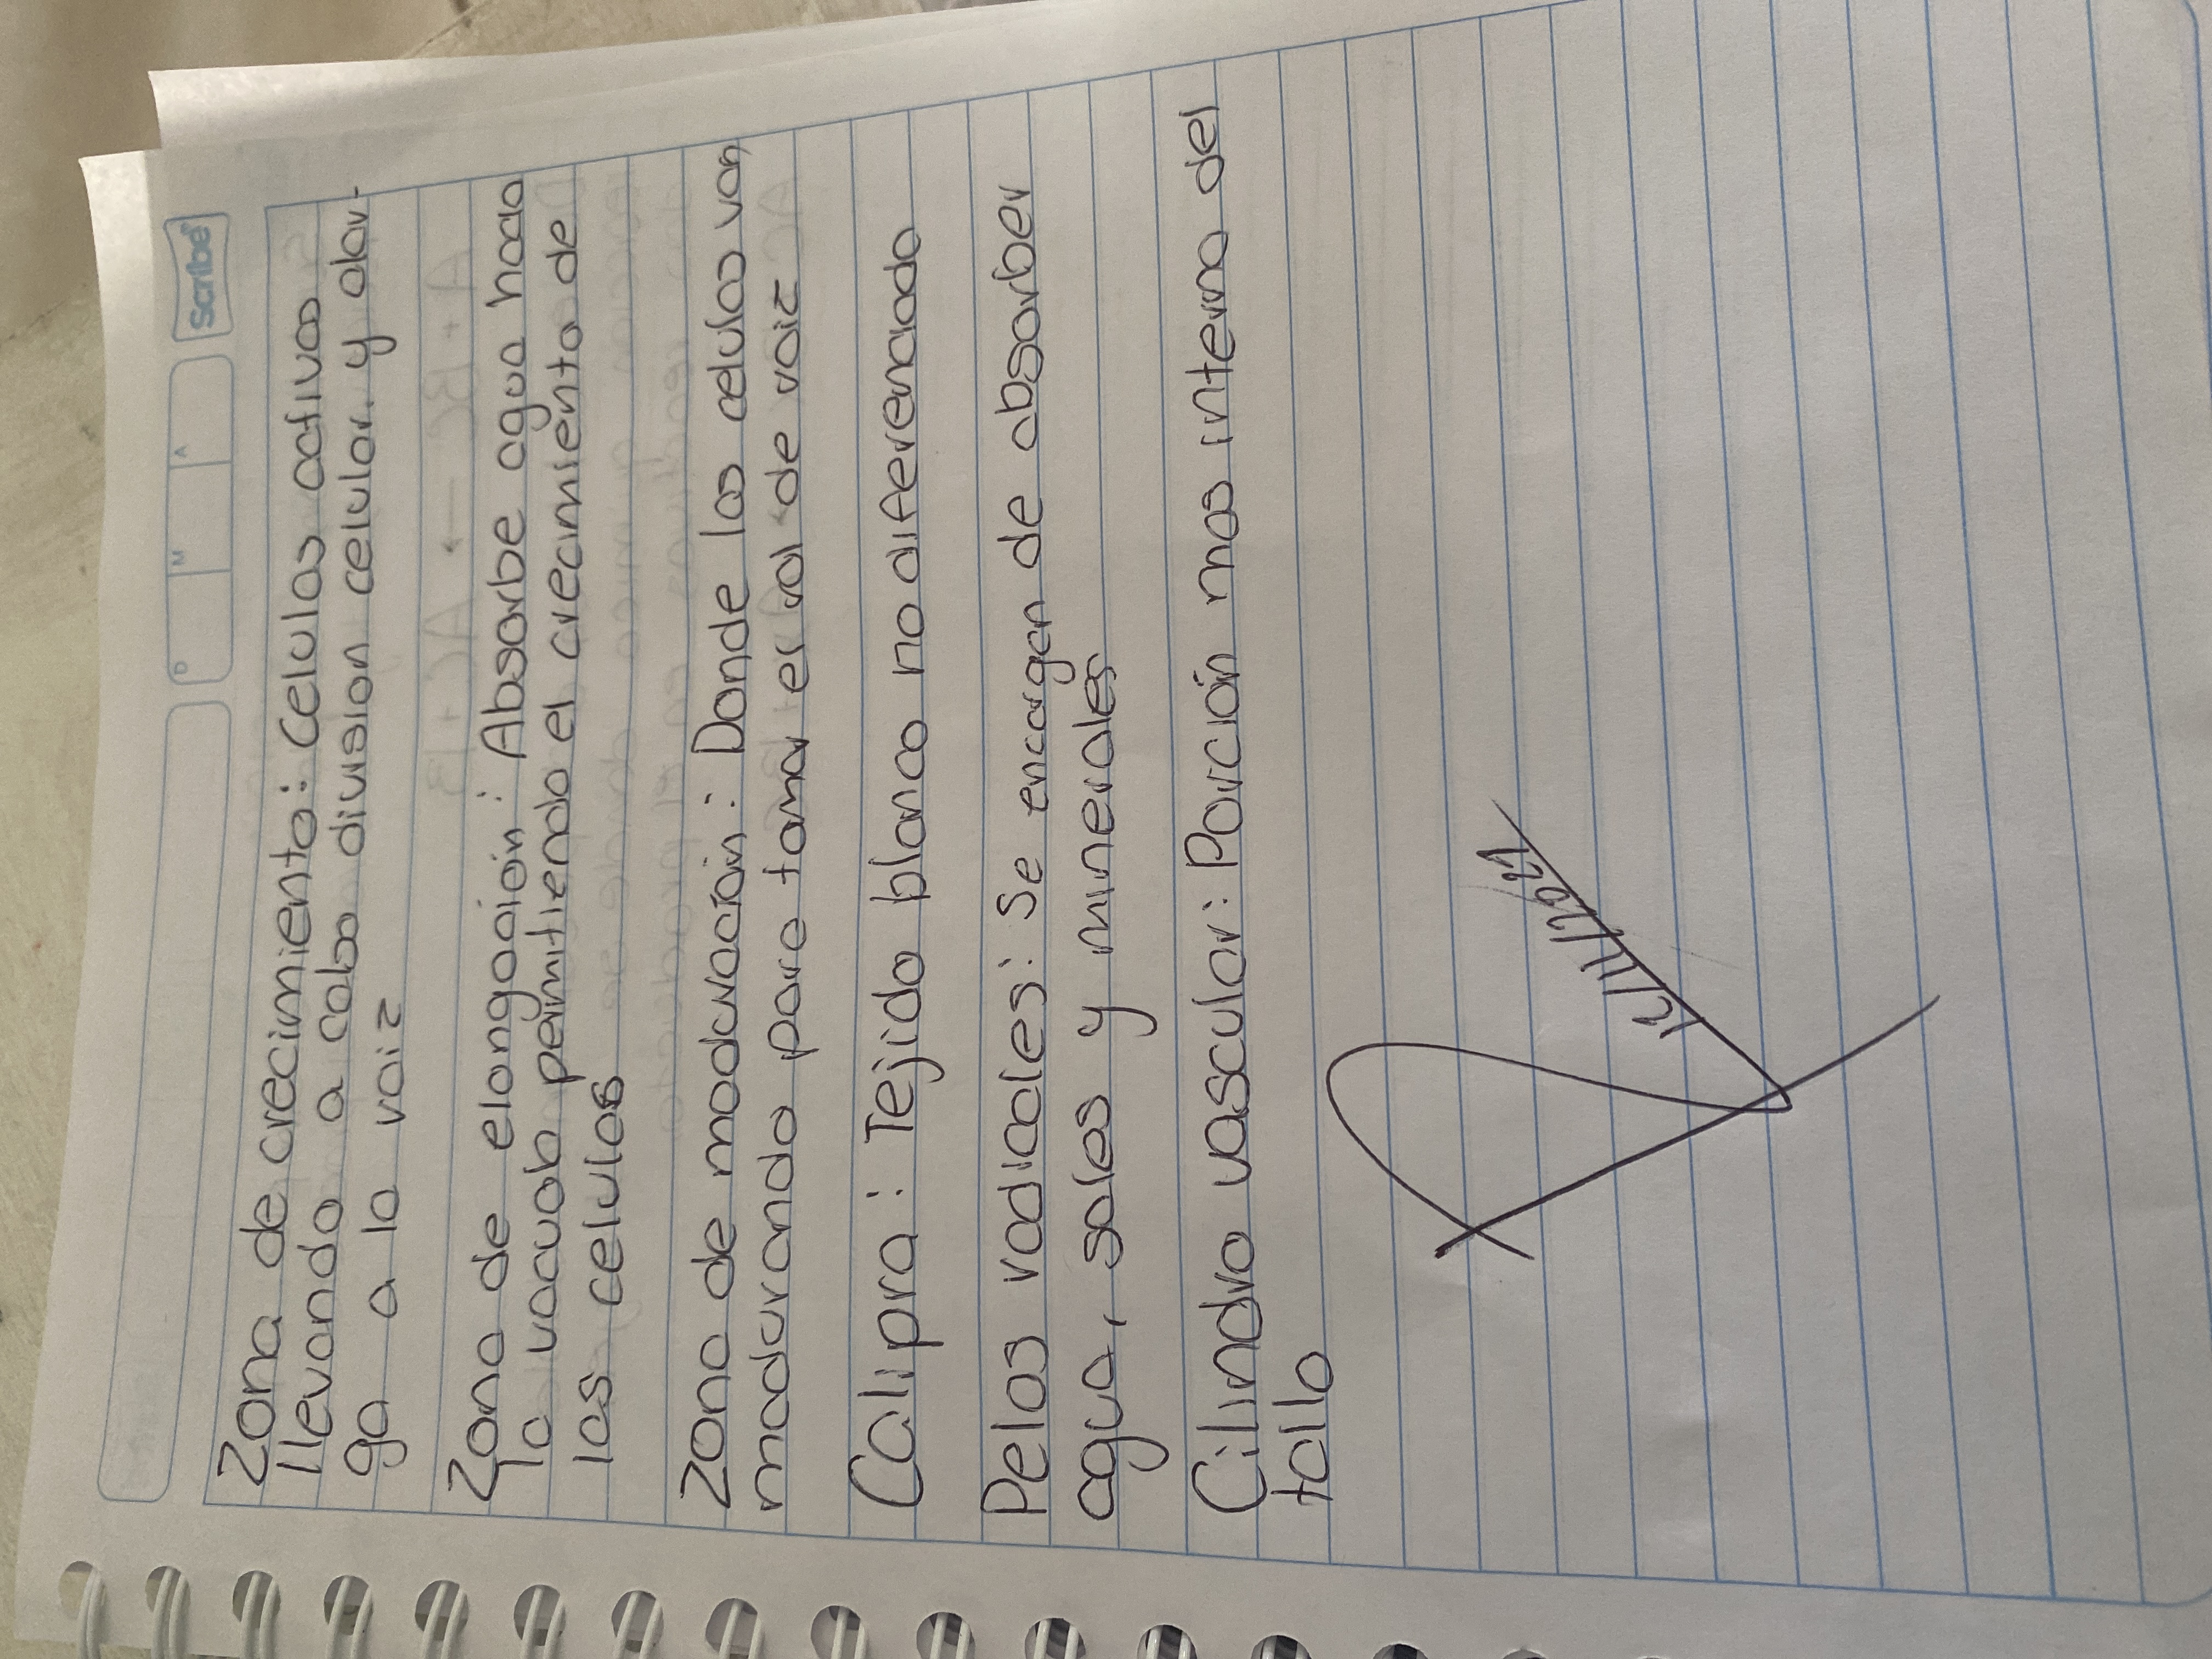 Scribe
D M A
Zona de crecimiento: Celulas activas
llevando a cabo division celular, y alar-
ga a la raiz
Zona de elongación: Absorbe agua hacia
la vacuola permitiendo el crecimiento de
las celulas
Zona de maduración: Donde las celulas van
madurando para tomar el rol de raiz
Calipra: Tejido blanco no diferenciado
Pelos radicales: Se encargan de absorber
agua, sales y minerales
Cilindro vascular: Porción mas interna del
tallo